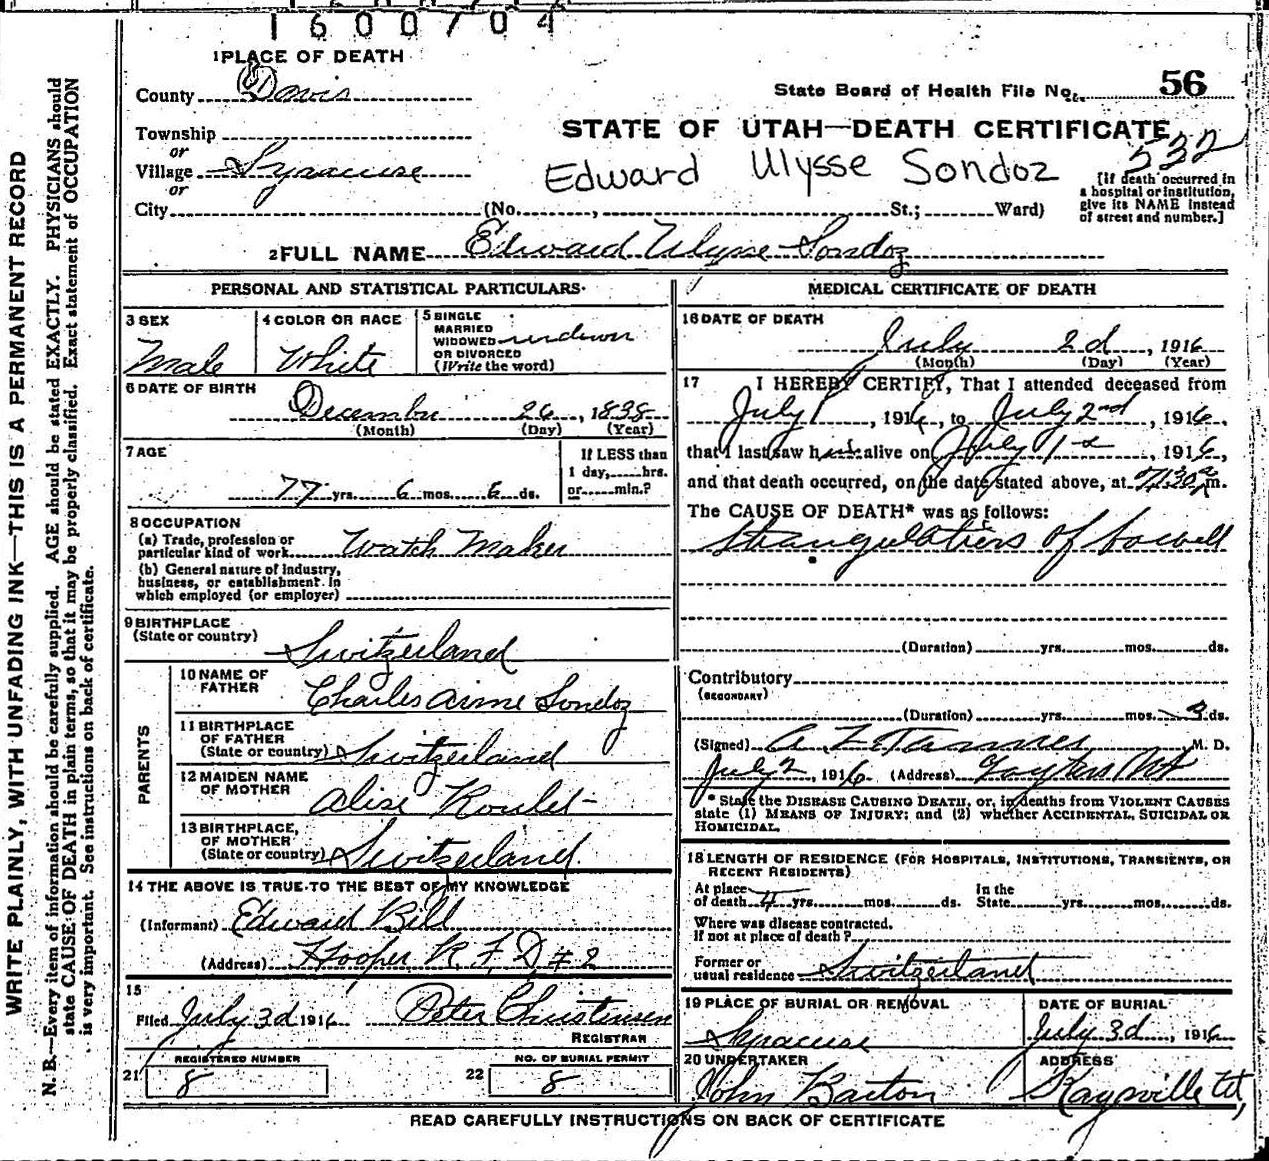 1600704
1 PLACE OF DEATH
County Davis
State Board of Health File No. 56
Township
or
STATE OF UTAH—DEATH CERTIFICATE
532
Village Syracuse
Edward Ulysse Sondoz
or
[If death occurred in
a hospital or institution,
give its NAME instead
of street and number.]
City (No. , St.; Ward)
2 FULL NAME Edward Ulysse Sondoz
PERSONAL AND STATISTICAL PARTICULARS
3 SEX
Male
4 COLOR OR RACE
White
5 SINGLE
MARRIED
WIDOWED
OR DIVORCED
(Write the word)
6 DATE OF BIRTH
December 26, 1838
(Month) (Day) (Year)
7 AGE
77 yrs. 6 mos. 6 ds.
If LESS than
1 day, hrs.
or min.?
8 OCCUPATION
(a) Trade, profession or
particular kind of work Watch Maker
(b) General nature of industry,
business, or establishment in
which employed (or employer)
9 BIRTHPLACE
(State or country) Switzerland
PARENTS
10 NAME OF
FATHER Charles Aime Sondoz
11 BIRTHPLACE
OF FATHER
(State or country) Switzerland
12 MAIDEN NAME
OF MOTHER Alise Roulet
13 BIRTHPLACE,
OF MOTHER
(State or country) Switzerland
14 THE ABOVE IS TRUE TO THE BEST OF MY KNOWLEDGE
(Informant) Edward Bill
(Address) Hooper R. F. D. # 2
15
Filed July 3d 1916 Peter Christensen
REGISTRAR
REGISTERED NUMBER
21 8
NO. OF BURIAL PERMIT
22 8
MEDICAL CERTIFICATE OF DEATH
16 DATE OF DEATH
July 2d, 1916
(Month) (Day) (Year)
17 I HEREBY CERTIFY, That I attended deceased from
July 1, 1916, to July 2nd, 1916,
that I last saw him alive on July 1st, 1916,
and that death occurred, on the date stated above, at 7:30 a m.
The CAUSE OF DEATH* was as follows:
Strangulations of bowell
(Duration) yrs. mos. ds.
Contributory
(SECONDARY)
(Duration) yrs. mos. ds.
(Signed) A Z Tanner M. D.
July 2, 1916 (Address) Layton Ut
* State the DISEASE CAUSING DEATH, or, in deaths from VIOLENT CAUSES
state (1) MEANS OF INJURY; and (2) whether ACCIDENTAL, SUICIDAL OR
HOMICIDAL.
18 LENGTH OF RESIDENCE (FOR HOSPITALS, INSTITUTIONS, TRANSIENTS, OR
RECENT RESIDENTS)
At place
of death 4 yrs. mos. ds.
In the
State yrs. mos. ds.
Where was disease contracted.
If not at place of death?
Former or
usual residence Switzerland
19 PLACE OF BURIAL OR REMOVAL
Syracuse
DATE OF BURIAL
July 3d, 1916
20 UNDERTAKER
John Barton
ADDRESS
Kaysville Ut,
READ CAREFULLY INSTRUCTIONS ON BACK OF CERTIFICATE
WRITE PLAINLY, WITH UNFADING INK—THIS IS A PERMANENT RECORD
N. B.—Every item of information should be carefully supplied. AGE should be stated EXACTLY. PHYSICIANS should
state CAUSE OF DEATH in plain terms, so that it may be properly classified. Exact statement of OCCUPATION
is very important. See instructions on back of certificate.